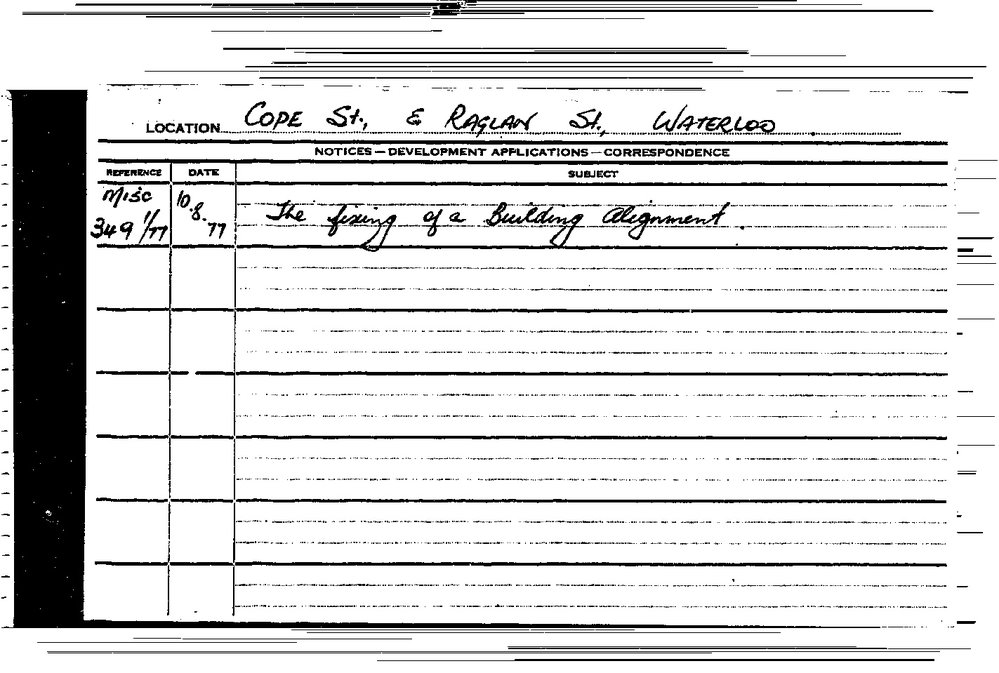 LOCATION COPE St., & RAGLAN St., WATERLOO
NOTICES — DEVELOPMENT APPLICATIONS — CORRESPONDENCE
REFERENCE DATE SUBJECT
Misc 10.8.77 The fixing of a Building Alignment.
349 1/77